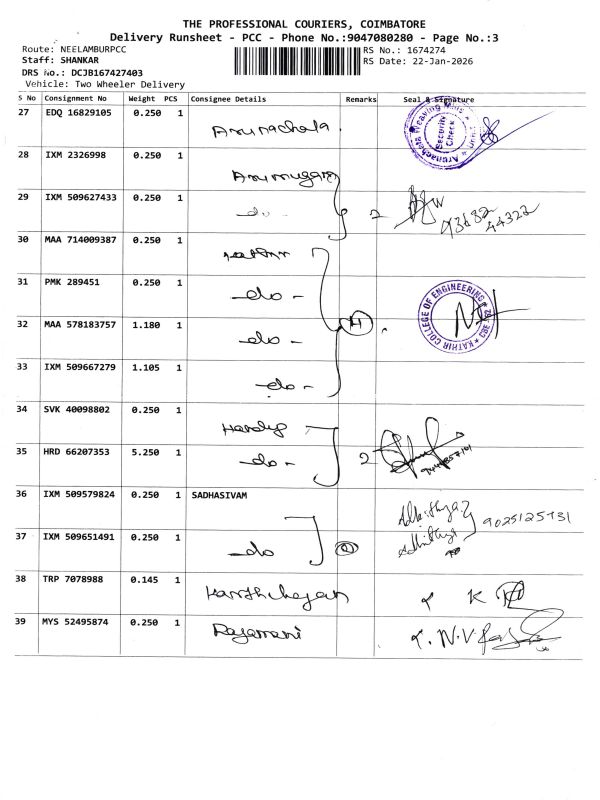 THE PROFESSIONAL COURIERS, COIMBATORE
Delivery Runsheet - PCC - Phone No.:9047080280 - Page No.:3
Route: NEELAMBURPCC RS No.: 1674274
Staff: SHANKAR RS Date: 22-Jan-2026
DRS No.: DCJB167427403
Vehicle: Two Wheeler Delivery
S No Consignment No Weight PCS Consignee Details Remarks Seal & Signature
27 EDQ 16829105 0.250 1 Arunachala. Security Check
28 IXM 2326998 0.250 1 Arumugam
29 IXM 509627433 0.250 1 -do- 2
30 MAA 714009387 0.250 1
31 PMK 289451 0.250 1 -do- KATHIR COLLEGE OF ENGINEERING
32 MAA 578183757 1.180 1 -do- 4
33 IXM 509667279 1.105 1 -do-
34 SVK 40098802 0.250 1
35 HRD 66207353 5.250 1 -do- 2
36 IXM 509579824 0.250 1 SADHASIVAM 9025125931
37 IXM 509651491 0.250 1 -do 2
38 TRP 7078988 0.145 1 Karthikeyan
39 MYS 52495874 0.250 1 Rajamani